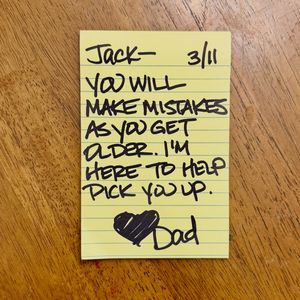 Jack— 3/11
YOU WILL
MAKE MISTAKES
AS YOU GET
OLDER. I'M
HERE TO HELP
PICK YOU UP.
Dad